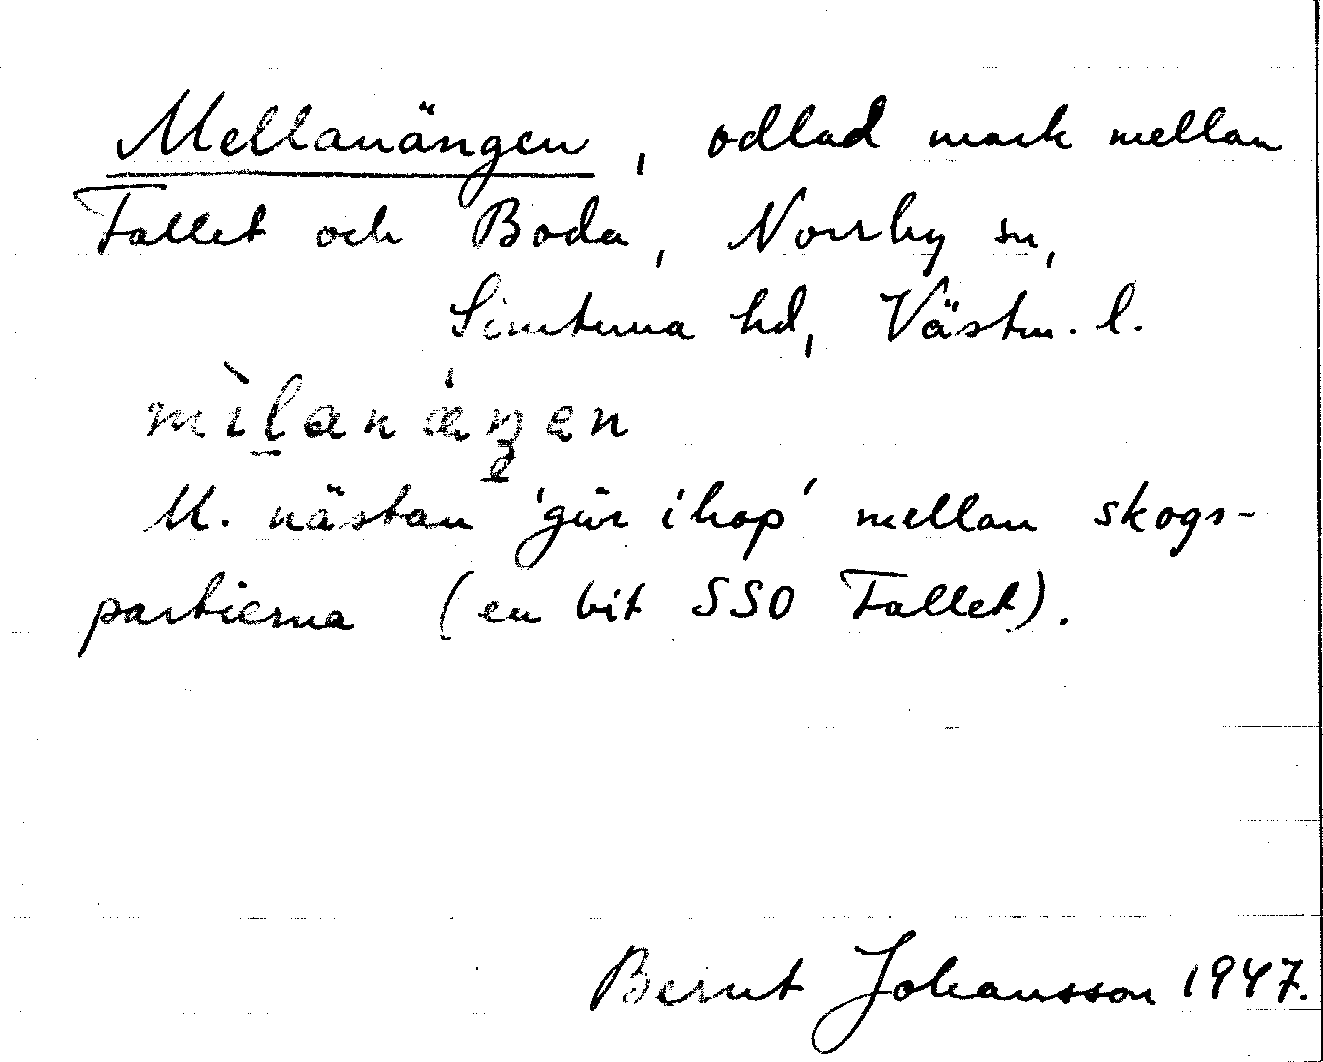 Mellanängen, odlad mark mellan
Fallet och Boda, Norrby sn,
Simtuna hd, Västm. l.
mìlanáŋen
M. nästan 'går ihop' mellan skogs-
partierna (en bit SSO Fallet).
Bernt Johansson 1947.